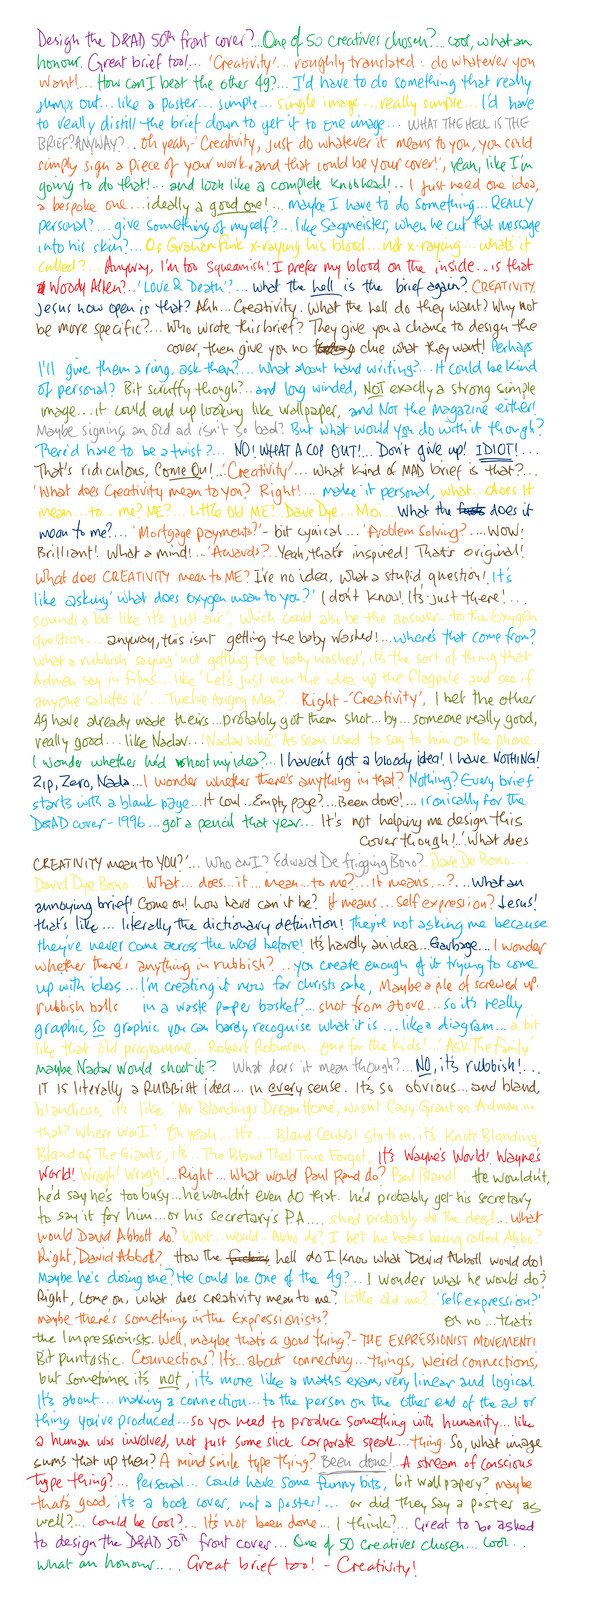 Design the D&AD 50th front cover?... One of 50 creatives chosen?... cool, what an
honour. Great brief too!... 'Creativity'... roughly translated: do whatever you
want!... How can I beat the other 49?... I'd have to do something that really
jumps out... like a poster... simple... single image... really simple... I'd have
to really distill the brief down to get it to one image... WHAT THE HELL IS THE
BRIEF? ANYWAY?... Oh yeah,- 'Creativity, just do whatever it means to you, you could
simply sign a piece of your work, and that could be your cover!', yeah, like I'm
going to do that!... and look like a complete knobhead!... I just need one idea,
a bespoke one... ideally a good one!... maybe I have to do something... REALLY
personal?... give something of myself?... like Sagmeister, when he cut that message
into his skin?... Or Graham Fink x-raying his blood... not x-raying... what's it
called?... Anyway, I'm too squeamish! I prefer my blood on the inside... is that
Woody Allen?... 'Love & Death'?... what the hell is the brief again? CREATIVITY.
Jesus how open is that? Ahh... Creativity. What the hell do they want? Why not
be more specific?... Who wrote this brief? They give you a chance to design the
cover, then give you no clue what they want! Perhaps
I'll give them a ring, ask them?... What about hand writing?... It could be kind
of personal? Bit scruffy though?... and long winded, NOT exactly a strong simple
image... it could end up looking like wallpaper, and Not the magazine either!
Maybe signing an old ad isn't so bad? But what would you do with it though?
There'd have to be a twist?... NO! WHAT A COP OUT!... Don't give up! IDIOT!...
That's ridiculous, Come On!... 'Creativity'... what kind of MAD brief is that?...
'What does Creativity mean to you? Right!... make it personal, what... does it
mean... to... me? ME?... Little old ME? Dave Dye... Moi... What the does it
mean to me?... 'Mortgage payments?' - bit cynical... 'Problem Solving?'... WOW!
Brilliant! What a mind!... 'Awards?' Yeah, that's inspired! That's original!
What does CREATIVITY mean to ME? I've no idea, what a stupid question! It's
like asking 'what does oxygen mean to you?' I don't know! It's just there!...
sounds a bit like 'it's just air', which could also be the answer to the Oxygen
question... anyway, this isn't getting the baby washed!... where's that come from?
what a rubbish saying 'not getting the baby washed', it's the sort of thing that
Admen say in films... like 'Let's just run the idea up the flagpole and see if
anyone salutes it'... Twelve Angry Men?... Right - 'Creativity', I bet the other
49 have already made theirs... probably got them shot... by... someone really good,
really good... like Nadav... 'Nadav who?' As Sean used to say to him on the phone...
I wonder whether he'd shoot my idea?... I haven't got a bloody idea! I have NOTHING!
Zip, Zero, Nada... I wonder whether there's anything in that? Nothing? Every brief
starts with a blank page... it coul.. Empty page?... Been done!... ironically for the
D&AD cover - 1996... got a pencil that year... It's not helping me design this
cover though!... 'What does
CREATIVITY mean to YOU?'... Who am I? Edward De frigging Bono? Dave De Bono...
David Dye Bono... What... does... it... mean... to me?... It means...?... What an
annoying brief! Come on! how hard can it be? It means... Self expression? Jesus!
that's like... literally the dictionary definition! They're not asking me because
they've never come across the word before! It's hardly an idea... Garbage... I wonder
whether there's anything in rubbish?... you create enough of it trying to come
up with ideas... I'm creating it now for christs sake, Maybe a pile of screwed up
rubbish balls in a waste paper basket?... shot from above... so it's really
graphic, So graphic you can barely recognise what it is... like a diagram... a bit
like that old programme... Robert Robinson... one for the kids!... 'Ask The Family'
maybe Nadav would shoot it? What does it mean though?... NO, it's rubbish!...
IT IS literally a RUBBISH idea... in every sense. It's so obvious... and bland,
blandioso, it's like 'Mr Blandings Dream Home', wasn't Cary Grant an Adman in
that? Where was I? Oh yeah... It's... Bland Central Station, it's Knots Blanding,
Bland of The Giants, it's... The Bland That Time Forgot, It's Wayne's World! Wayne's
World! Wragh! Wragh!... Right... What would Paul Rand do? Paul Bland!... He wouldn't,
he'd say he's too busy... he wouldn't even do that. he'd probably get his secretary
to say it for him... or his secretary's P.A.... she'd probably do the deed... what
would David Abbott do? What... would... Abbo do? I bet he hates being called Abbo?
Right, David Abbott? How the hell do I know what David Abbott would do!
Maybe he's doing one? He could be One of the 49?... I wonder what he would do?
Right, come on, what does creativity mean to me? Little old me?... 'Self expression?'
maybe there's something in the Expressionists? Oh no... that's
the Impressionists. Well, maybe that's a good thing? - THE EXPRESSIONIST MOVEMENT!
Bit puntastic. Connections? It's... about connecting... things, weird connections,
but sometimes it's not, it's more like a maths exam, very linear and logical
It's about... making a connection... to the person on the other end of the ad or
thing you've produced... so you need to produce something with humanity... like
a human was involved, not just some slick corporate speak... thing. So, what image
sums that up then? A mind smile type thing? Been done! A stream of conscious
type thing?... Personal... Could have some funny bits, bit wallpapery? maybe
that's good, it's a book cover, not a poster!... or did they say a poster as
well?... Could be cool?... It's not been done... I think?... Great to be asked
to design the D&AD 50th front cover... One of 50 creatives chosen... Cool...
what an honour.... Great brief too! - Creativity!